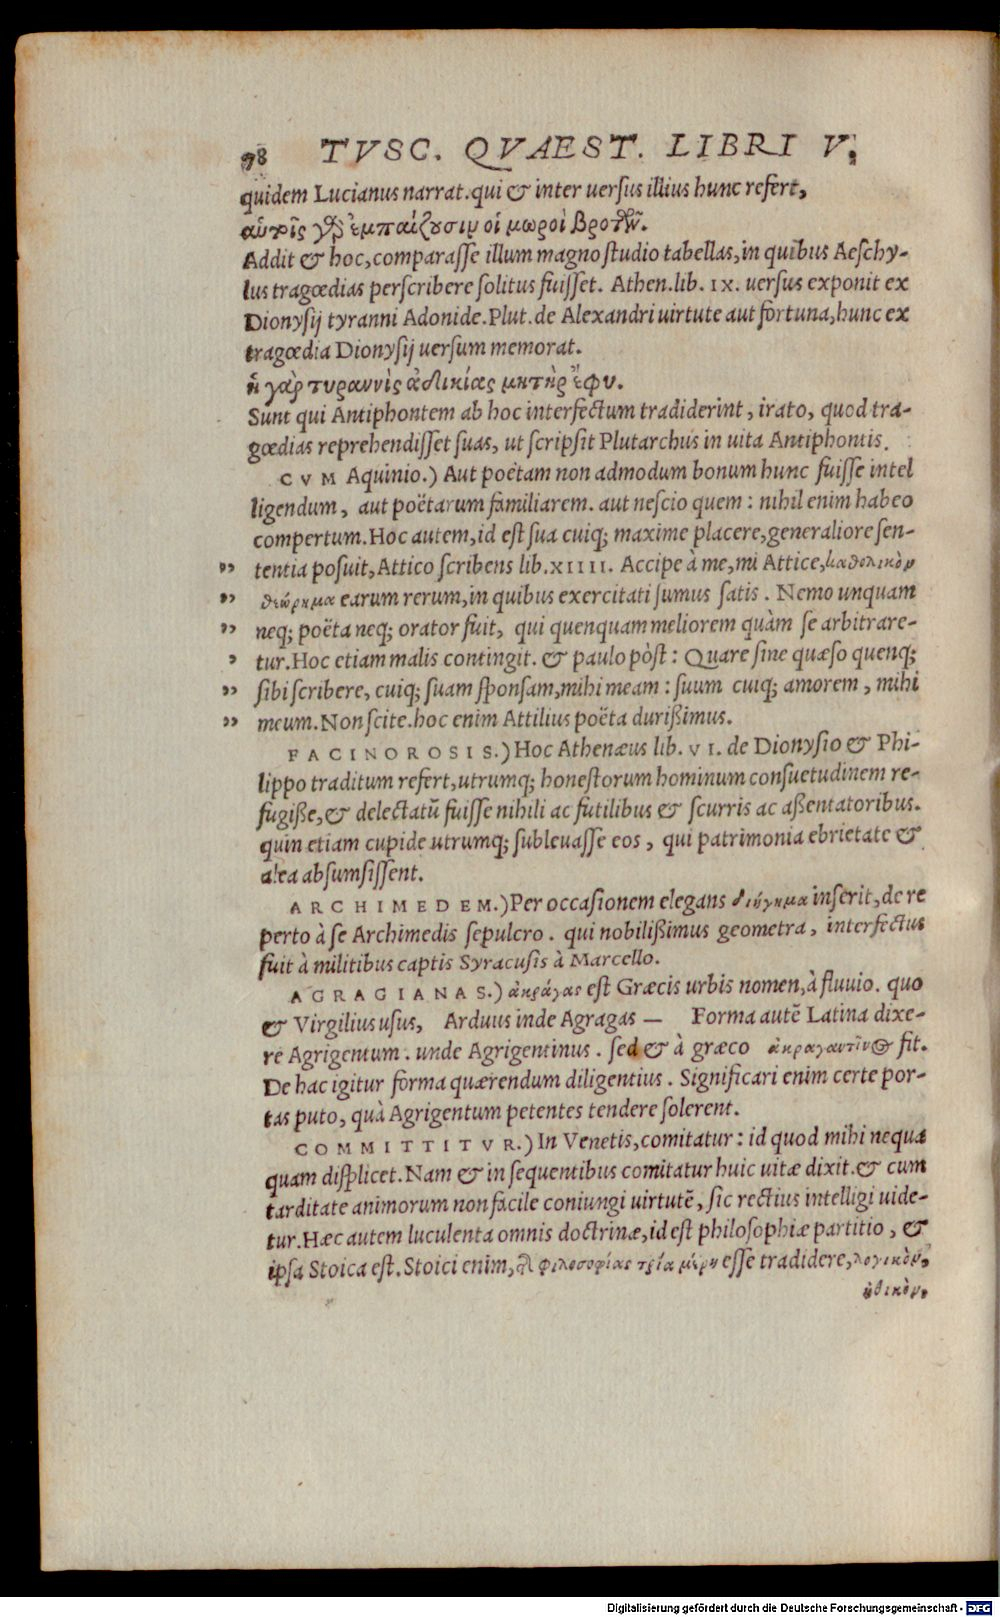 98 TVSC. QVAEST. LIBRI V.
quidem Lucianus narrat. qui & inter uersus illius hunc refert,
αὑτοῖς γὰρ ἐμπαίζουσιν οἱ μωροὶ βροτῶν.
Addit & hoc, comparasse illum magno studio tabellas, in quibus Aeschy-
lus tragœdias perscribere solitus fuisset. Athen. lib. IX. uersus exponit ex
Dionysij tyranni Adonide. Plut. de Alexandri uirtute aut fortuna, hunc ex
tragœdia Dionysij uersum memorat.
ἡ γὰρ τυραννὶς ἀδικίας μητὴρ ἔφυ.
Sunt qui Antiphontem ab hoc interfectum tradiderint, irato, quod tra-
gœdias reprehendisset suas, ut scripsit Plutarchus in uita Antiphontis.
CVM Aquinio.) Aut poëtam non admodum bonum hunc fuisse intel
ligendum, aut poëtarum familiarem. aut nescio quem: nihil enim habeo
compertum. Hoc autem, id est sua cuiq; maxime placere, generaliore sen-
" tentia posuit, Attico scribens lib. XIIII. Accipe à me, mi Attice, καθολικὸν
" θεώρημα earum rerum, in quibus exercitati sumus satis. Nemo unquam
" neq; poëta neq; orator fuit, qui quenquam meliorem quàm se arbitrare-
' tur. Hoc etiam malis contingit. & paulo pòst: Quare sine quæso quenq;
" sibi scribere, cuiq; suam sponsam, mihi meam: suum cuiq; amorem, mihi
" meum. Non scite. hoc enim Attilius poëta durißimus.
FACINOROSIS.) Hoc Athenæus lib. VI. de Dionysio & Phi-
lippo traditum refert, utrumq; honestorum hominum consuetudinem re-
fugiße, & delectatũ fuisse nihili ac futilibus & scurris ac aßentatoribus.
quin etiam cupide utrumq; subleuasse eos, qui patrimonia ebrietate &
alea absumsissent.
ARCHIMEDEM.) Per occasionem elegans διήγημα inserit, de re
perto à se Archimedis sepulcro. qui nobilißimus geometra, interfectus
fuit à militibus captis Syracusis à Marcello.
AGRAGIANAS.) ἀκράγας est Græcis urbis nomen, à fluuio. quo
& Virgilius usus, Arduus inde Agragas — Forma autẽ Latina dixe-
re Agrigentum. unde Agrigentinus. sed & à græco ἀκραγαντῖνος fit.
De hac igitur forma quærendum diligentius. Significari enim certe por-
tas puto, quà Agrigentum petentes tendere solerent.
COMMITTITVR.) In Venetis, comitatur: id quod mihi nequa
quam displicet. Nam & in sequentibus comitatur huic uitæ dixit. & cum
tarditate animorum non facile coniungi uirtutẽ, sic rectius intelligi uide-
tur. Hæc autem luculenta omnis doctrinæ, id est philosophiæ partitio, &
ipsa Stoica est. Stoici enim, τῆς φιλοσοφίας τρία μέρη esse tradidere, λογικὸν,
ἠθικὸν,
Digitalisierung gefördert durch die Deutsche Forschungsgemeinschaft - DFG